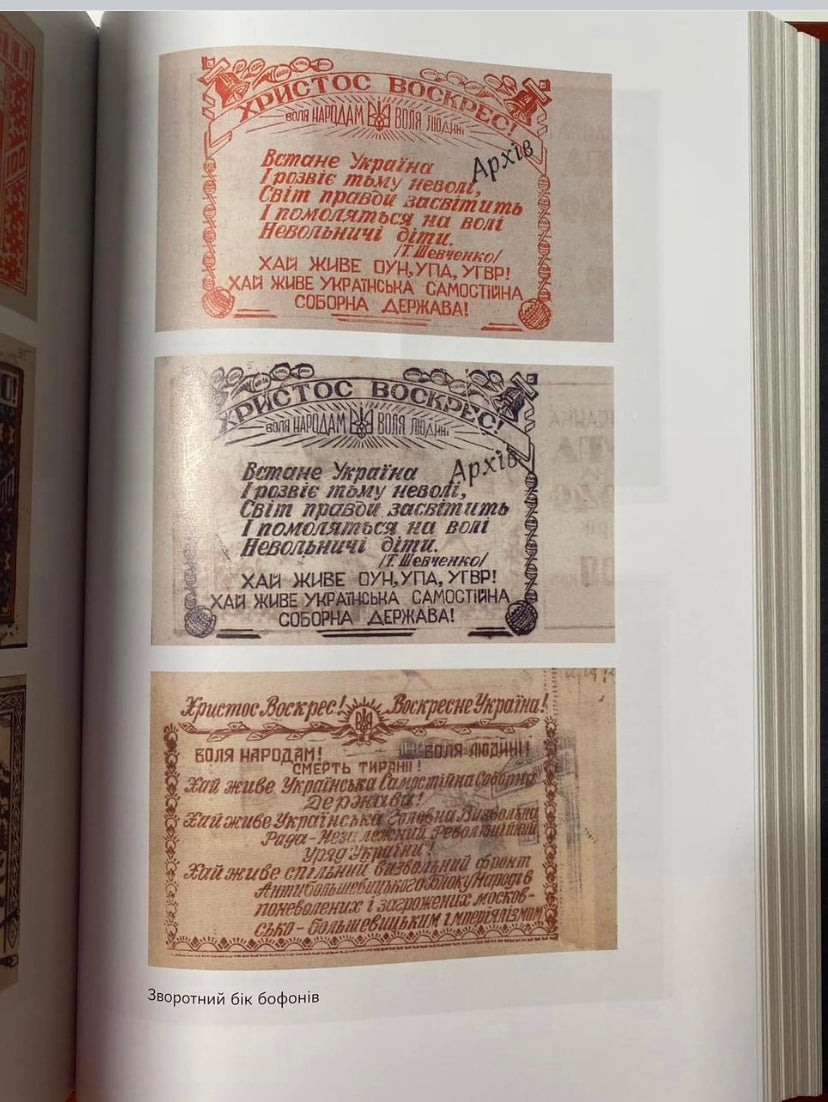 ХРИСТОС ВОСКРЕС!
ВОЛЯ НАРОДАМ ВОЛЯ ЛЮДИНІ
Архів
Встане Україна
І розвіє тьму неволі,
Світ правди засвітить
І помоляться на волі
Невольничі діти.
/Т. Шевченко/
ХАЙ ЖИВЕ ОУН, УПА, УГВР!
ХАЙ ЖИВЕ УКРАЇНСЬКА САМОСТІЙНА
СОБОРНА ДЕРЖАВА!
ХРИСТОС ВОСКРЕС!
ВОЛЯ НАРОДАМ ВОЛЯ ЛЮДИНІ
Архів
Встане Україна
І розвіє тьму неволі,
Світ правди засвітить
І помоляться на волі
Невольничі діти.
/Т. Шевченко/
ХАЙ ЖИВЕ ОУН, УПА, УГВР!
ХАЙ ЖИВЕ УКРАЇНСЬКА САМОСТІЙНА
СОБОРНА ДЕРЖАВА!
Христос Воскрес! Воскресне Україна!
ВОЛЯ НАРОДАМ! ВОЛЯ ЛЮДИНІ!
СМЕРТЬ ТИРАНІЇ!
Хай живе Українська Самостійна Соборна
Держава!
Хай живе Українська Головна Визвольна
Рада - Незалежний Революційний
Уряд України!
Хай живе спільний визвольний фронт
Антибольшевицького Блоку Народів
поневолених і загрожених москов-
сько - большевицьким імперіялізмом
Зворотний бік бофонів